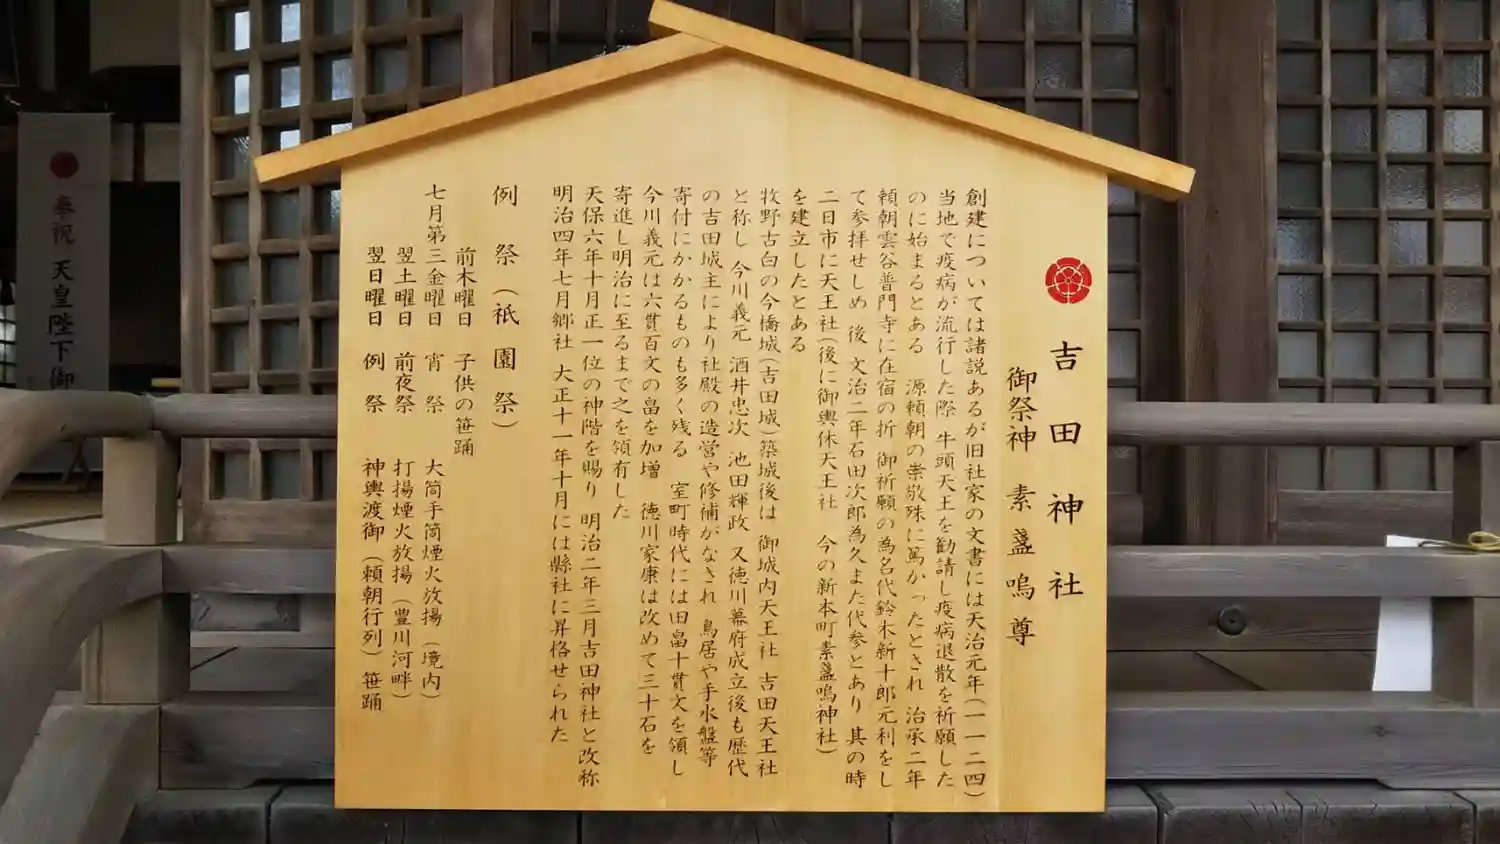 吉田神社
御祭神　素盞嗚尊
創建については諸説あるが旧社家の文書には天治元年（一一二四）
当地で疫病が流行した際　牛頭天王を勧請し疫病退散を祈願した
のに始まるとある　源頼朝の崇敬殊に篤かったとされ　治承二年
頼朝雲谷普門寺に在宿の折　御祈願の為名代鈴木新十郎元利をし
て参拝せしめ　後　文治二年石田次郎為久また代参とあり　其の時
二日市に天王社（後に御輿休天王社　今の新本町素盞嗚神社）
を建立したとある
牧野古白の今橋城（吉田城）築城後は　御城内天王社　吉田天王社
と称し　今川義元　酒井忠次　池田輝政　又徳川幕府成立後も歴代
の吉田城主により社殿の造営や修補がなされ　鳥居や手水盤等
寄付にかかるものも多く残る　室町時代には田畠十貫文を領し
今川義元は六貫百文の畠を加増　徳川家康は改めて三十石を
寄進し明治に至るまで之を領有した
天保六年十月正一位の神階を賜り　明治二年三月吉田神社と改称
明治四年七月郷社　大正十一年十月には縣社に昇格せられた
例祭（祇園祭）
前木曜日　子供の笹踊
七月第三金曜日　宵祭　大筒手筒煙火放揚（境内）
翌土曜日　前夜祭　打揚煙火放揚（豊川河畔）
翌日曜日　例祭　神輿渡御（頼朝行列）笹踊
奉祝　天皇陛下御